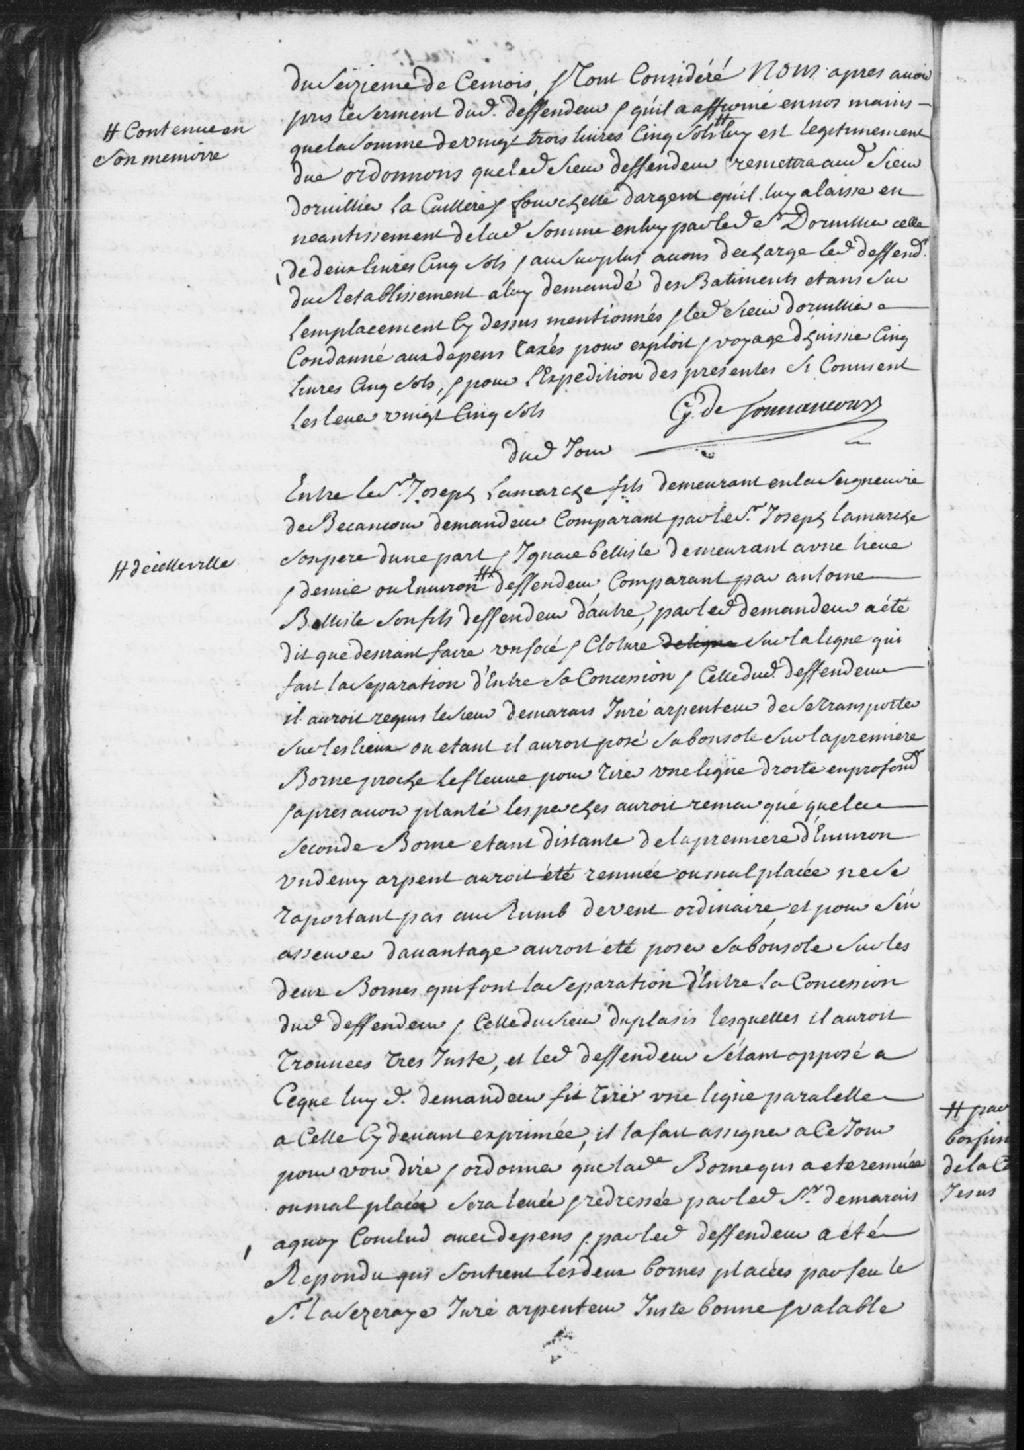 du seizieme de Cemois, & Tout Consideré Nous apres avoir
pris le serment dud. deffendeur & quil a affirmé en nos mains
que la somme de vingt trois livres Cinq sols # luy est legitimement
# Contenue en
son memoire
due ordonnons que led sieur deffendeur remettra aud sieur
dorvillier la Cuilliere & fourchette dargent quil luy a laissé en
neantissement de lad somme en luy par led sr Dorvillier celle
de deux livres Cinq sols & au surplus avons decharge led deffendr.
du Retablissement a luy demandé des Batiments etans sur
l'emplacement Cy dessus mentionnés & led sieur dorvillier
Condanné aux depens taxés pour exploit & voyage d'huissier Cinq
livres Cinq sols, & pour l'Expedition des presentes si Convient
les lever vingt Cinq sols G. de Tonnancour
dud Jour
Entre le Sr. Joseph Lamarche fils demeurant en la seigneurie
de Becancour demandeur Comparant par le Sr. Joseph Lamarche
son pere d'une part & Ignace belliste demeurant a une lieue
& demie ou Environ # deffendeur Comparant par antoine
# dicelle ville
Belliste son fils deffendeur d'autre, par led demandeur a été
dit que desirant faire un fossé & Cloture de ligne sur la ligne qui
fait la separation d'Entre sa Concession & Celle dud. deffendeur
il auroit requis le sieur demarais Juré arpenteur de se transporter
sur les lieux ou etant il auroit posé sa bousole sur la premiere
Borne proche le fleuve pour tirer une ligne droite en profondr
& apres avoir planté les perches auroit remarqué que la
seconde Borne etant distante de la premiere d'Environ
un demy arpent auroit été remuée ou mal placée ne se
raportant pas au Rumb de vent ordinaire et pour s'en
asseurer davantage auroit été poser sa bousole sur les
deux Bornes qui font la separation d'Entre la Concession
dud deffendeur & Celle du sieur duplasis lesquelles il auroit
trouvees tres Juste, et led deffendeur s'étant opposé a
Ceque luy d. demandeur fit tirer une ligne paralelle
a Celle Cy devant exprimée, il la fait assigner a Ce Jour
pour voir dire & ordonner que lad Borne qui a ete remuée
ou mal placée sera levée & redressée par led Sr. demarais
aquoy Conclud avec depens & par led deffendeur a été
Repondu qui soutient les deux bornes placées par feu le
Sr. Lasezeraye Juré arpenteur Juste bonne & valable
# par
de la C
Jesus